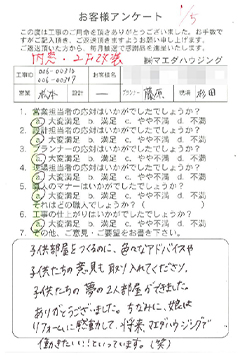 お客様アンケート
この度は工事のご用命を頂きありがとうございました。お手数で
すがご記入頂き、ご返送頂きますようお願い申し上げます。
ご返送頂いた方から、毎月抽選で感謝品を進呈いたします。
内窓・2F改装 ㈱マエダハウジング
工事ID お客様名
営業 設計 プランナー 藤原 現場 杉田
1. 営業担当者の応対はいかがでしたでしょうか？
a 大変満足 b. 満足 c. やや不満 d. 不満
2. 設計担当者の応対はいかがでしたでしょうか？
a 大変満足 b. 満足 c. やや不満 d. 不満
3. プランナーの応対はいかがでしたでしょうか？
a 大変満足 b. 満足 c. やや不満 d. 不満
4. 現場担当者の応対はいかがでしたでしょうか？
a 大変満足 b. 満足 c. やや不満 d. 不満
5. 職人のマナーはいかがでしたでしょうか？
a 大変満足 b. 満足 c. やや不満 d. 不満
それはどの職人でしょうか？（ ）
6. 工事の仕上がりはいかがでしたでしょうか？
a 大変満足 b. 満足 c. やや不満 d. 不満
7. その他、ご意見・ご要望をお書き下さい。
子供部屋をつくるのに、色々なアドバイスや
子供たちの意見も取り入れてくださり、
子供たちの夢の2人部屋ができました。
ありがとうございました。ちなみに、娘は
リフォームに感動して、将来マエダハウジングで
働きたい!!といっています。（笑）